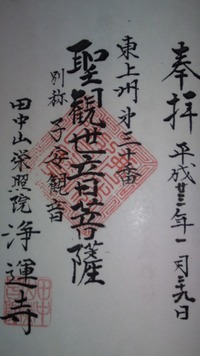 奉拝 平成廿三年一月廿九日
東上州㐧三十番
聖観世音菩薩
別称 子安観音
田中山栄照院 浄運寺